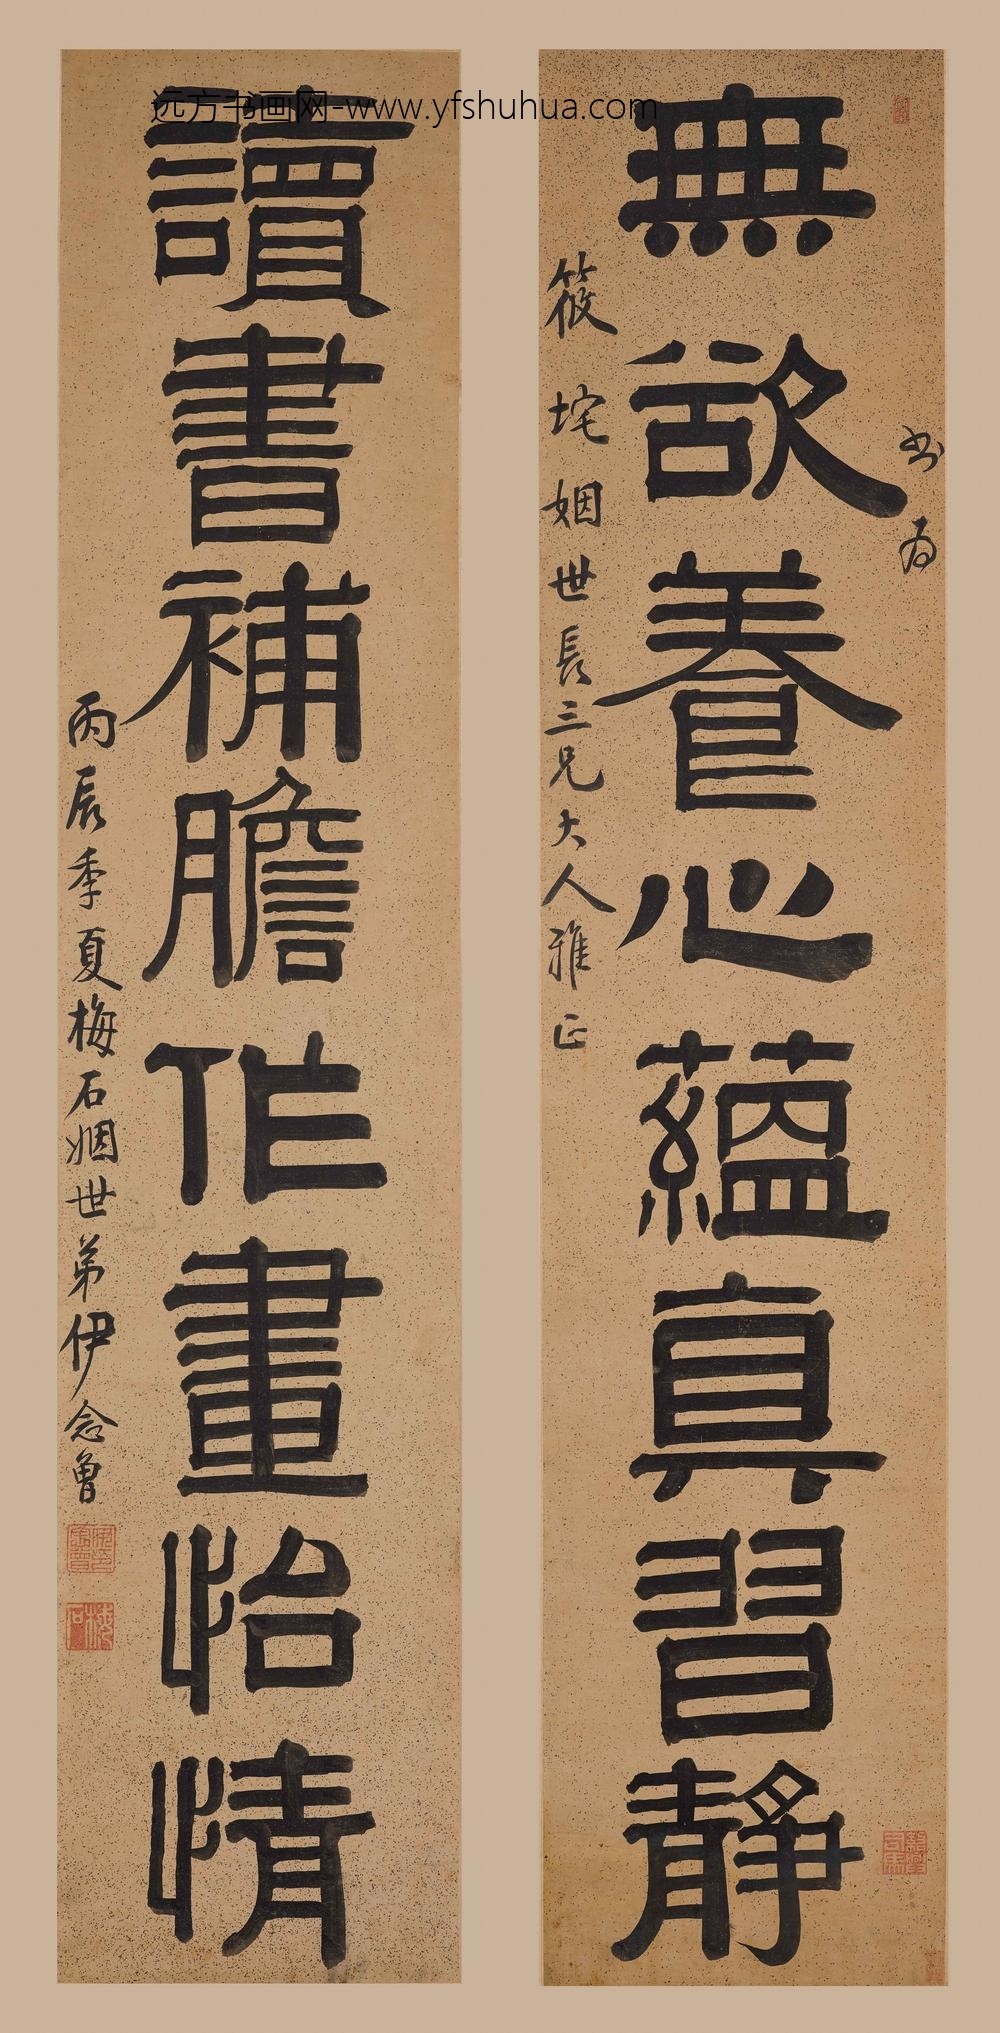 远方书画网-www.yfshuhua.com
書为
無欲養心蘊真習靜
筱坨姻世長三兄大人雅正
讀書補膽作畫怡情
丙辰季夏梅石姻世弟伊念曾
梅石